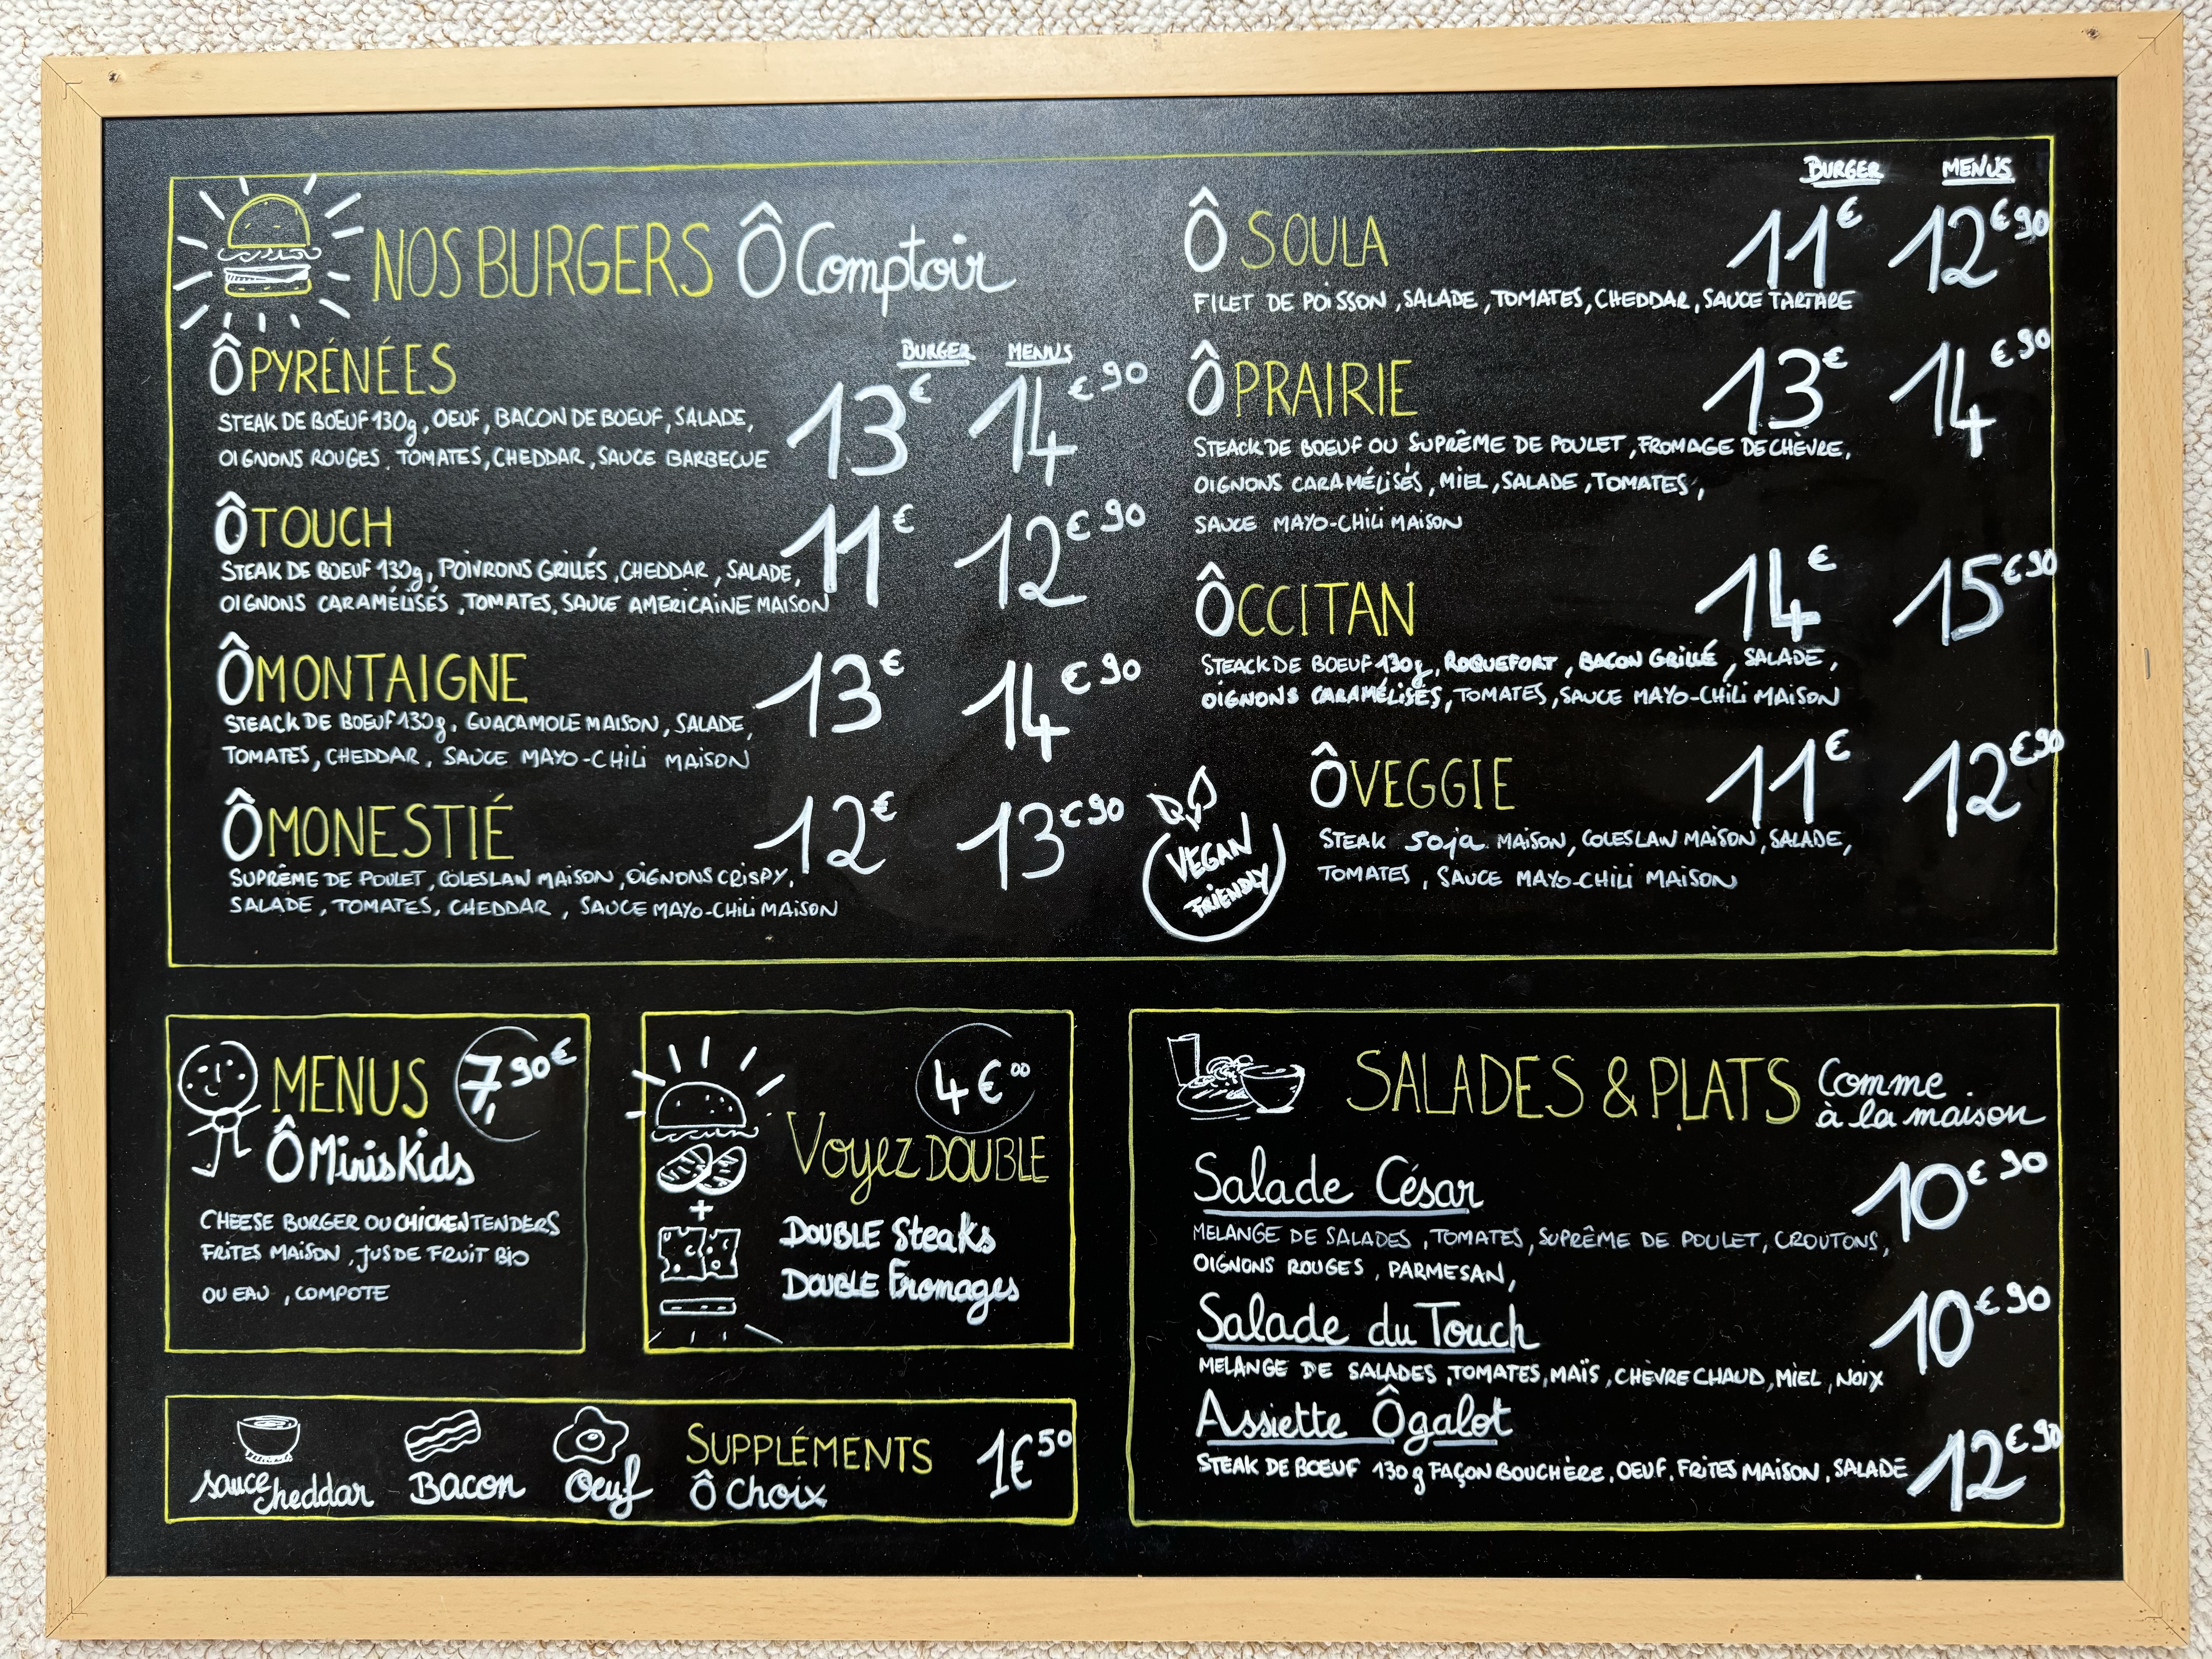 NOS BURGERS Ô Comptoir
BURGER MENUS
Ô PYRÉNÉES 13€ 14€90
STEAK DE BOEUF 130g, OEUF, BACON DE BOEUF, SALADE,
OIGNONS ROUGES, TOMATES, CHEDDAR, SAUCE BARBECUE
Ô TOUCH 11€ 12€90
STEAK DE BOEUF 130g, POIVRONS GRILLÉS, CHEDDAR, SALADE,
OIGNONS CARAMÉLISÉS, TOMATES, SAUCE AMERICAINE MAISON
Ô MONTAIGNE 13€ 14€90
STEACK DE BOEUF 130g, GUACAMOLE MAISON, SALADE,
TOMATES, CHEDDAR, SAUCE MAYO-CHILI MAISON
Ô MONESTIÉ 12€ 13€90
SUPRÊME DE POULET, COLESLAW MAISON, OIGNONS CRISPY,
SALADE, TOMATES, CHEDDAR, SAUCE MAYO-CHILI MAISON
BURGER MENUS
Ô SOULA 11€ 12€90
FILET DE POISSON, SALADE, TOMATES, CHEDDAR, SAUCE TARTARE
Ô PRAIRIE 13€ 14€90
STEACK DE BOEUF OU SUPRÊME DE POULET, FROMAGE DE CHÈVRE,
OIGNONS CARAMÉLISÉS, MIEL, SALADE, TOMATES,
SAUCE MAYO-CHILI MAISON
ÔCCITAN 14€ 15€90
STEACK DE BOEUF 130g, ROQUEFORT, BACON GRILLÉ, SALADE,
OIGNONS CARAMÉLISÉS, TOMATES, SAUCE MAYO-CHILI MAISON
Ô VEGGIE 11€ 12€90
STEAK Soja MAISON, COLESLAW MAISON, SALADE,
TOMATES, SAUCE MAYO-CHILI MAISON
VEGAN
FRIENDLY
MENUS 7,90€
Ô Minis Kids
CHEESE BURGER OU CHICKEN TENDERS
FRITES MAISON, JUS DE FRUIT BIO
OU EAU, COMPOTE
4€00
Voyez DOUBLE
DOUBLE Steaks
+
DOUBLE Fromages
sauce cheddar
Bacon
Oeuf
SUPPLÉMENTS 1€50
Ô Choix
SALADES & PLATS Comme
à la maison
Salade César 10€90
MELANGE DE SALADES, TOMATES, SUPRÊME DE POULET, CROUTONS,
OIGNONS ROUGES, PARMESAN,
Salade du Touch 10€90
MELANGE DE SALADES, TOMATES, MAÏS, CHÈVRE CHAUD, MIEL, NOIX
Assiette Ôgalot 12€90
STEAK DE BOEUF 130g FAÇON BOUCHÈRE, OEUF, FRITES MAISON, SALADE